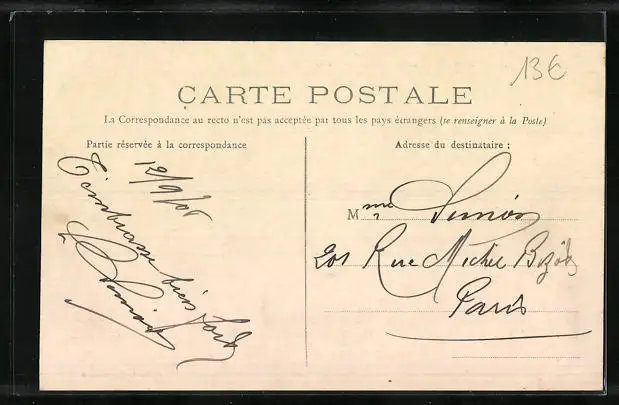 13€
CARTE POSTALE
La Correspondance au recto n'est pas acceptée par tous les pays étrangers (se renseigner à la Poste)
Partie réservée à la correspondance
12/9/06
bien fort
Adresse du destinataire :
Mme Simon
201 Rue Michel Bizot
Paris